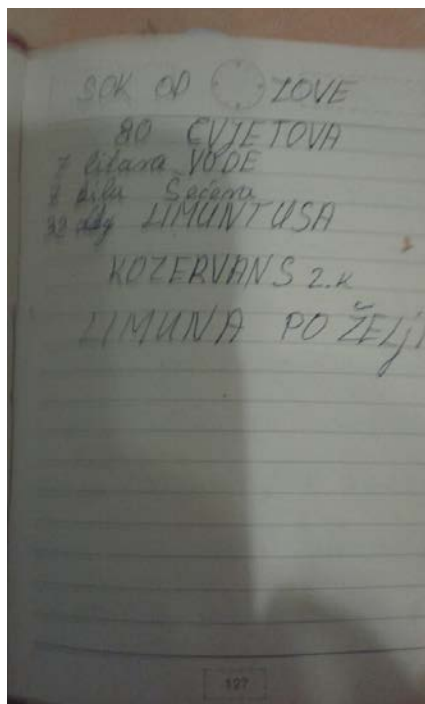 SOK OD ZOVE
80 CVJETOVA
7 litara VODE
7 kila Šećera
dkg LIMUNTUSA
KOZERVANS 2.K
LIMUNA PO ŽELjI
127